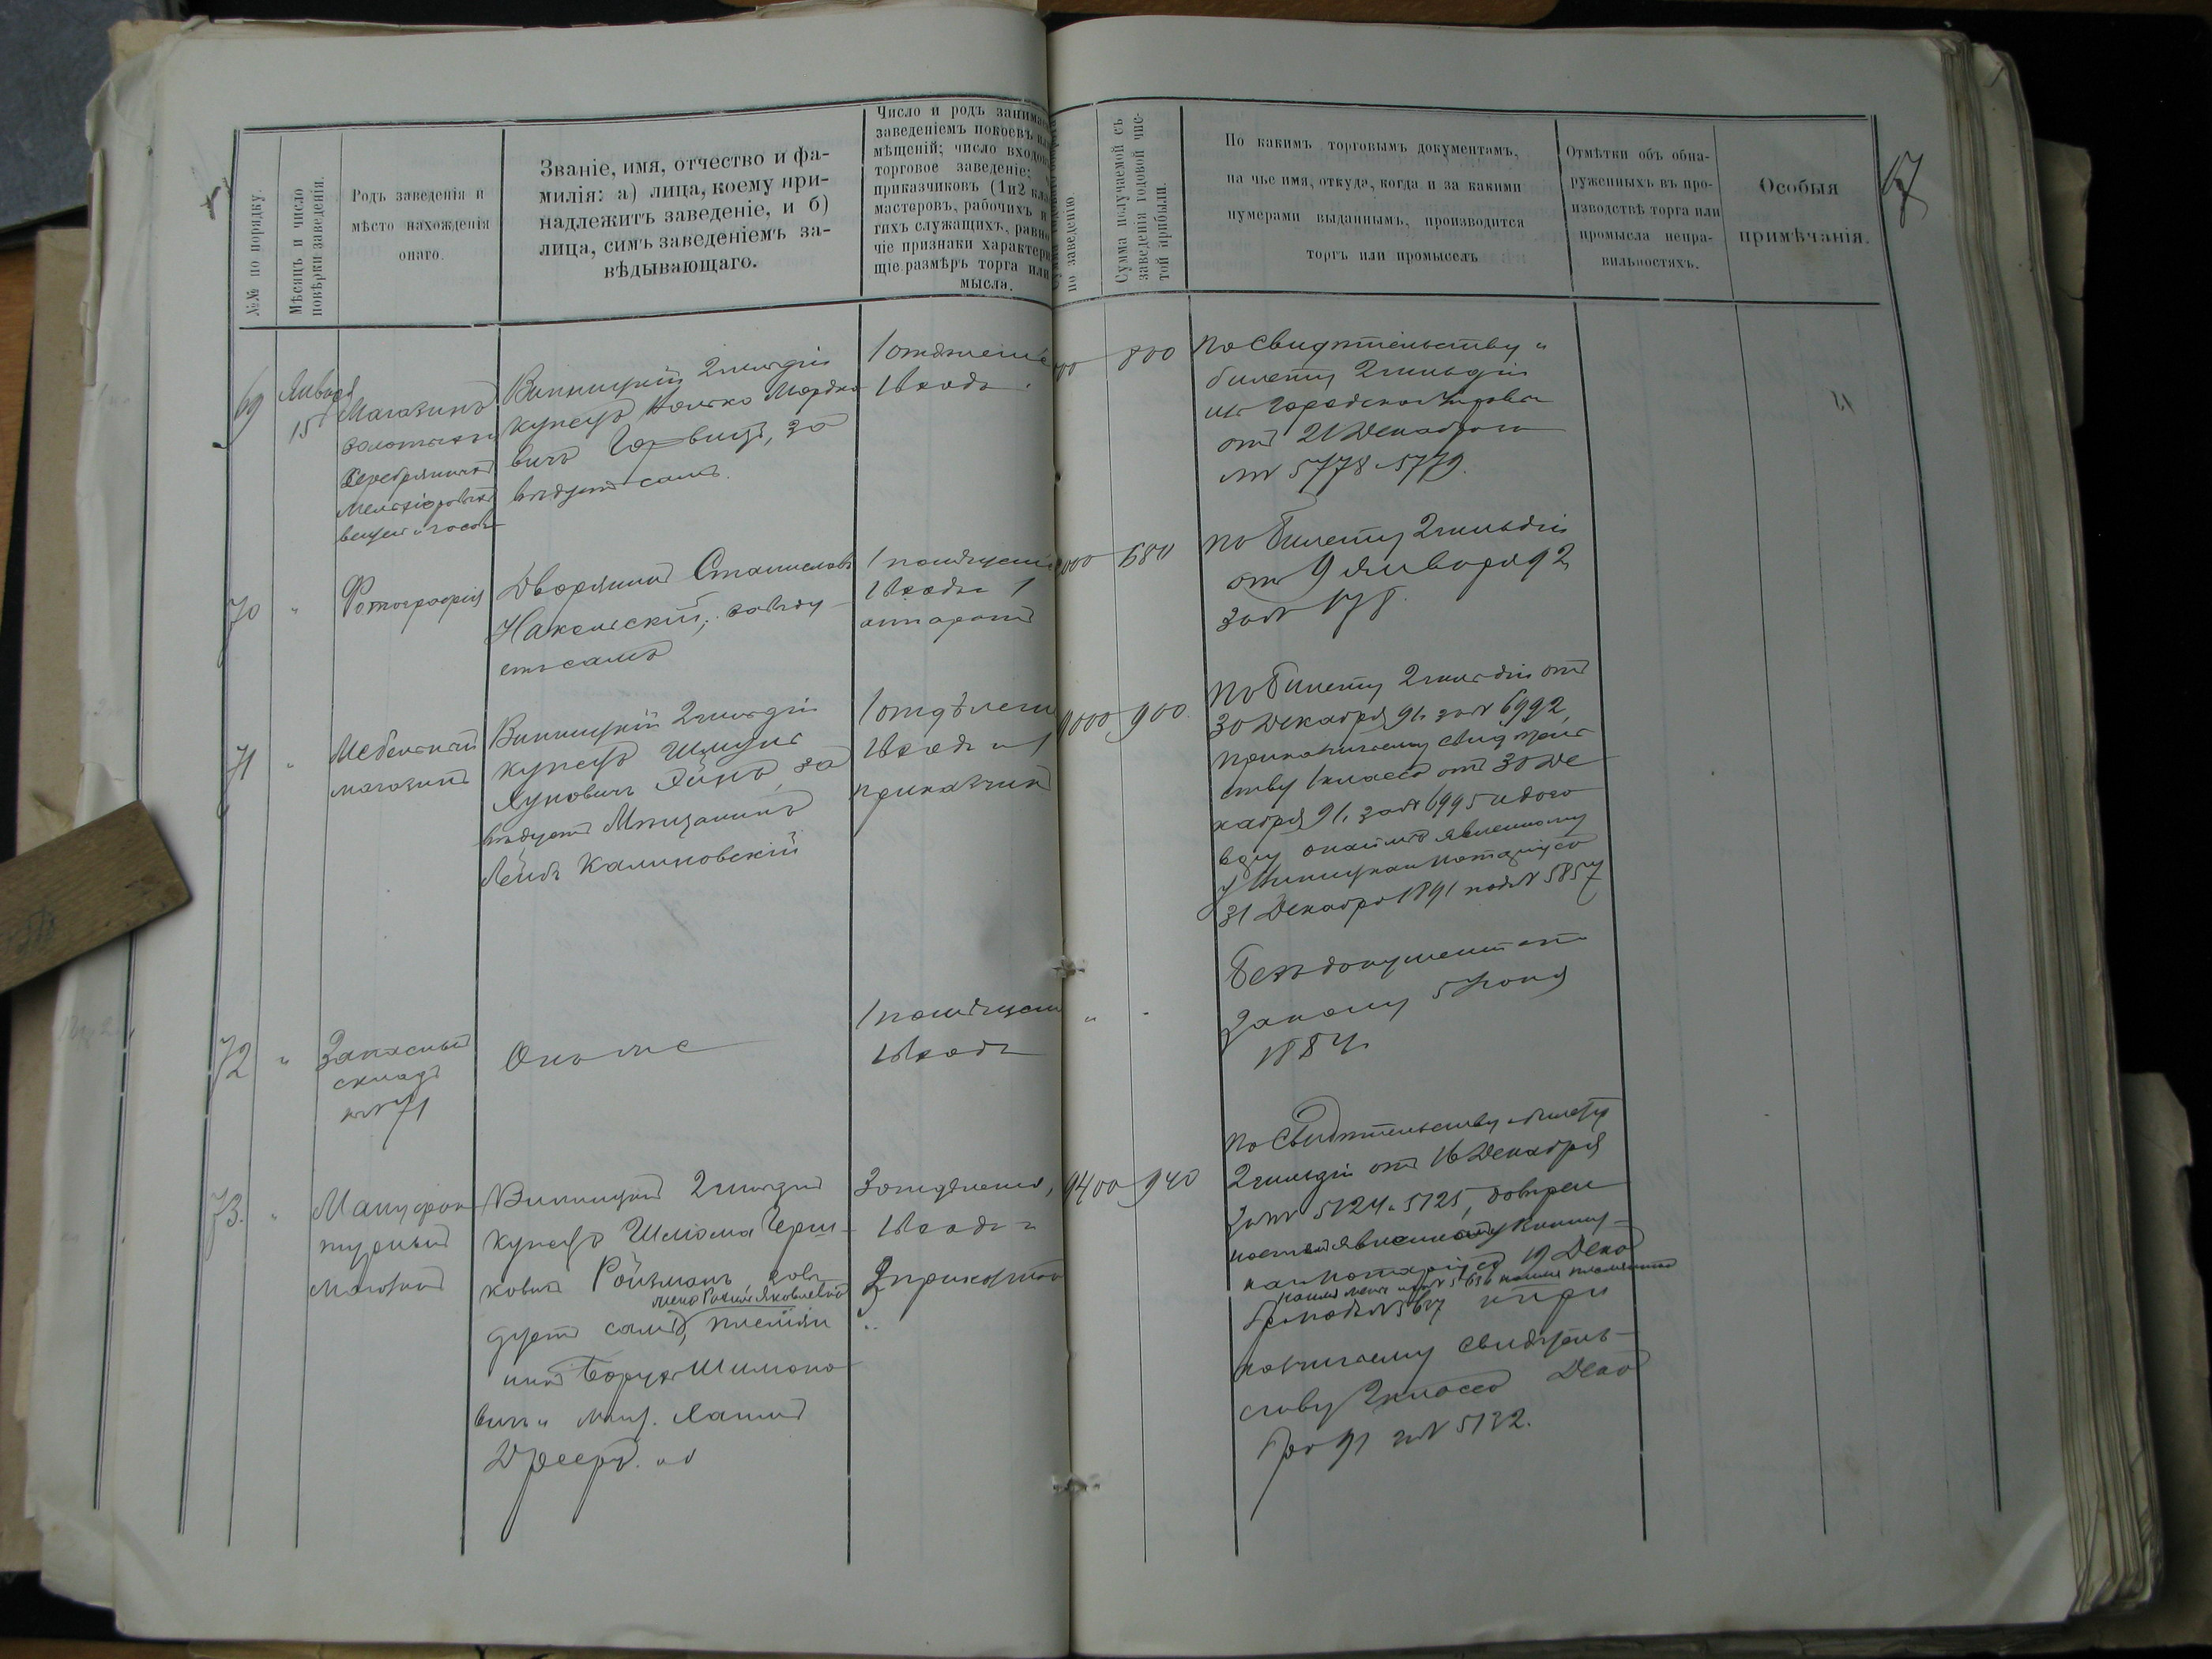 №№ по порядку.
Мѣсяцъ и число
повѣрки заведенія.
Родъ заведенія и
мѣсто нахожденія
онаго.
Званіе, имя, отчество и фа-
милія: а) лица, коему при-
надлежитъ заведеніе, и б)
лица, симъ заведеніемъ за-
вѣдывающаго.
Число и родъ занима
заведеніемъ покоевъ
мѣщеній; число входо
торговое заведеніе;
приказчиковъ (1 и 2 кла
мастеровъ, рабочихъ и
гихъ служащихъ, равно
чіе признаки характери
щіе размѣръ торга или
мысла.
по заведенію.
Сумма получаемой съ
заведенія годовой чис-
той прибыли.
По какимъ торговымъ документамъ,
на чье имя, откуда, когда и за какими
нумерами выданнымъ, производится
торгъ или промыселъ
Отмѣтки объ обна-
руженныхъ въ про-
изводствѣ торга или
промысла непра-
вильностяхъ.
Особыя
примѣчанія.
67
69
Января
15
Магазинъ
золотыхъ
серебряныхъ
мельхіоровыхъ
вещей и часовъ
Винницкій 2 гильдіи
купецъ Мордко
вичъ Гурвицъ, за
вѣдуетъ самъ.
1 отдѣленіе
1 входъ
800
По свидѣтельству и
билету 2 гильдіи
изъ Городской Управы
отъ 21 Декабря
№ 5778 и 5779.
70
"
Фотографія
Дворянинъ Станиславъ
завѣду-
етъ самъ
1 помѣщеніе
1 входъ и 1
аппаратъ
000
680
По билету 2 гильдіи
отъ 9 Января 92
за № 178.
71
"
Мебельный
магазинъ
Винницкій 2 гильдіи
купецъ Шмуль
за
вѣдуетъ Мѣщанинъ
Лейбъ Калиновскій
1 отдѣлені
1 входъ и 1
приказчикъ
9000
900
По билету 2 гильдіи отъ
30 Декабря 91 за № 6992,
приказчичьему свидѣтель
ству 1 класса отъ 30 Де
кабря 91. за № 6995 и дого
вору о наймѣ явленному
у Винницкаго Нотаріуса
31 Декабря 1891 под № 5857
72
"
Запасный
складъ
къ № 71
Онъ же
1 помѣщен
1 входъ
"
Безъ документа по
закону 5 Іюня
1884 г.
73.
"
Мануфак
турный
магазинъ
Винницкій 2 гильдіи
купецъ Шлома Герш-
ковичъ Ройзманъ, завѣ
жена Яковлевна
дуетъ самъ, племян
никъ Борухъ Шимоно
вичъ и мѣщ.
3 отдѣленія,
1 входъ и
2 приказчика
9400
940
По Свидѣтельству и билету
2 гильдіи отъ 16 Декабря
за № 5124 и 5125, довѣрен
ностямъ явленнымъ у Винниц-
каго Нотаріуса 19 Дека
и при
казчичьему свидѣтель-
ству 2 класса Дека
бря 91 за № 5132.